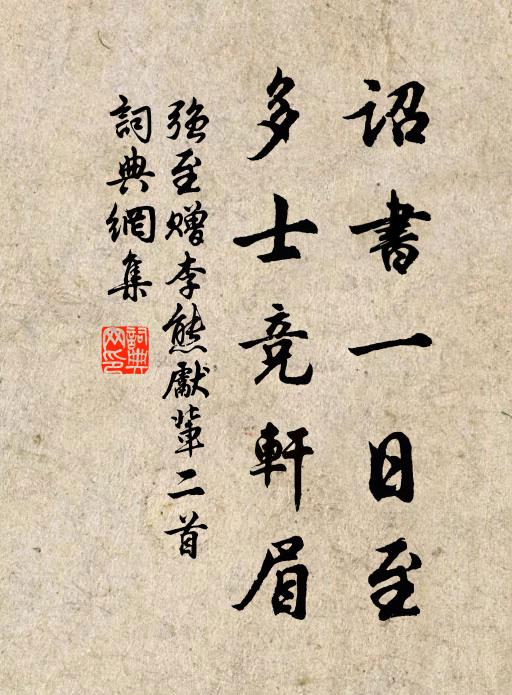 詔書一日至
多士竞軒眉
強至贈李熊獻輩二首
詞典網集
詞典
网印